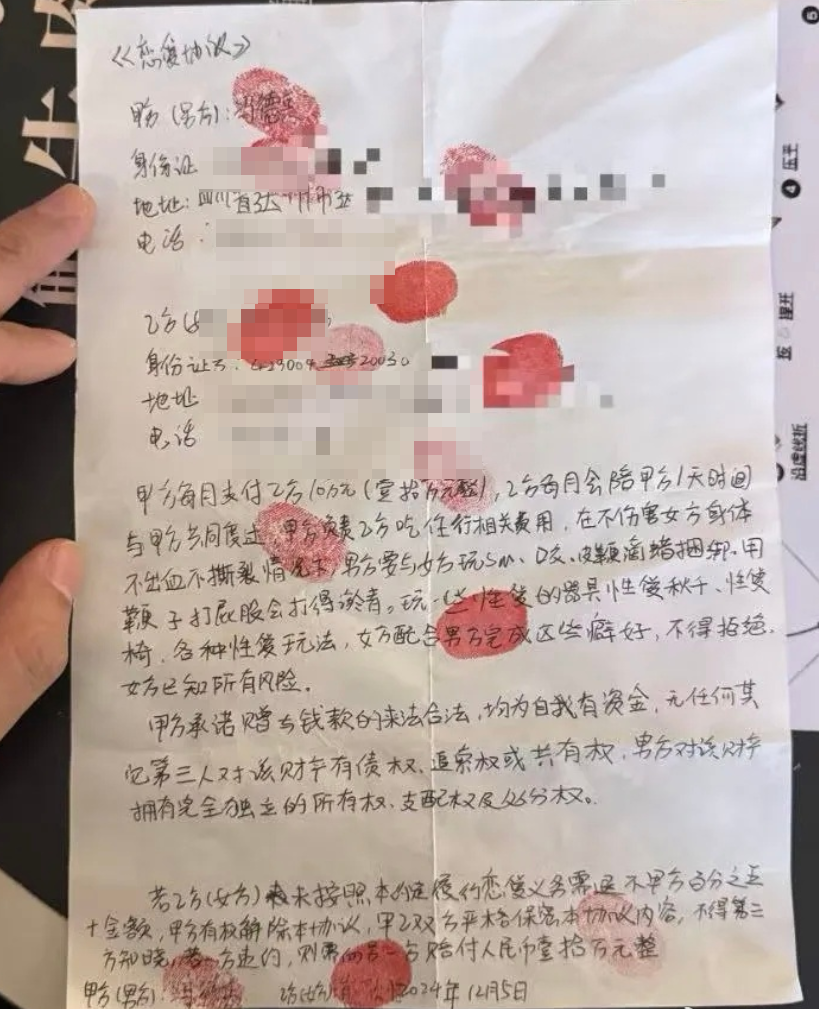 《恋爱协议》
甲方(男方):
身份证
地址:四川省达州市
电话:
乙方(
身份证号:
地址
电话
甲方每月支付乙方10万元(壹拾万元整),乙方每月会陪甲方1天时间
与甲方共同度过,甲方负责乙方吃住行相关费用,在不伤害女方身体
不出血不撕裂情况下,男方要与女方玩sm、口交、皮鞭滴蜡捆绑.用
鞭子打屁股会打得淤青。玩一些性爱的器具性爱秋千、性爱
椅,各种性爱玩法,女方配合男方完成这些癖好,不得拒绝.
女方已知所有风险.
甲方承诺赠与钱款的来法合法,均为自我有资金,无任何其
它第三人对该财产有债权、追索权或共有权,男方对该财产
拥有完全独立的所有权、支配权及处分权。
若乙方(女方)未按照本约定履行恋爱义务需退不甲方百分之五
十金额,甲方有权解除本协议,甲乙双方严格保密本协议内容,不得第三
方知晓,若一方违约,则需向另一方赔付人民币壹拾万元整
甲方(男方): 乙方(女方) 2024年12月5日
生
5
压平
4
撑开
沿虚线折